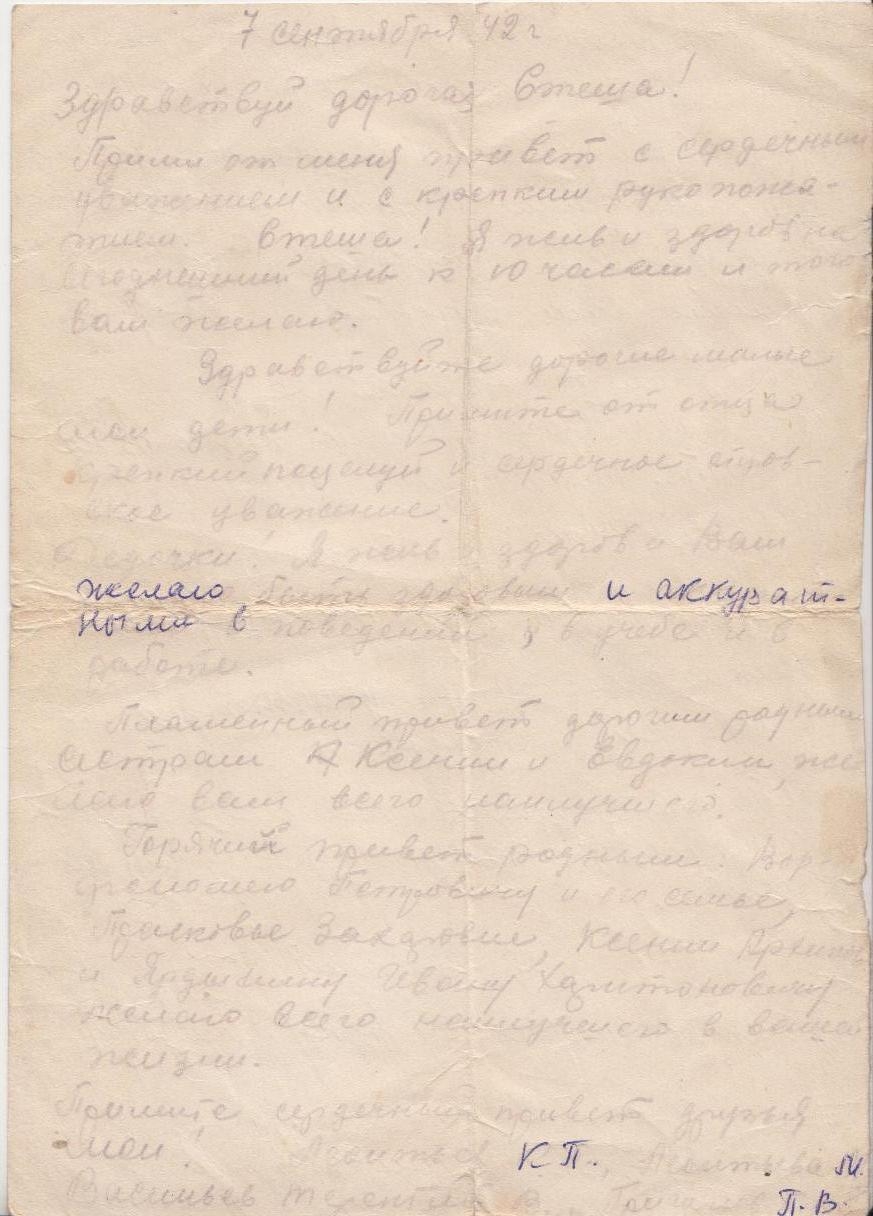 7 сентября 42 г
Здравствуй дорогая Стеша!
Прими от меня привет с сердечным
уважением и с крепким рукопожа-
тием. Стеша! Я жив и здоров на
сегодняшний день к 10 часам и того
вам желаю.
Здравствуйте дорогие малые
мои дети! Примите от отца
крепкий поцелуй и сердечное отцов-
ское уважение.
Девочки! Я жив и здоров и Вам
желаю быть здоровым и аккурат-
ными в поведении, в учебе и в
работе.
Пламенный привет дорогим родным
сестрам Аксении и Евдокии, же
лаю вам всего наилучшего.
Горячий привет родным:
Петровичу и его семье,
Прасковье Захаровне, Ксении
и Ивану Харитоновичу
желаю всего наилучшего в вашей
жизни.
Примите сердечный привет друзья
мои! К.П., Леонтьева М.
Васильев П.В.